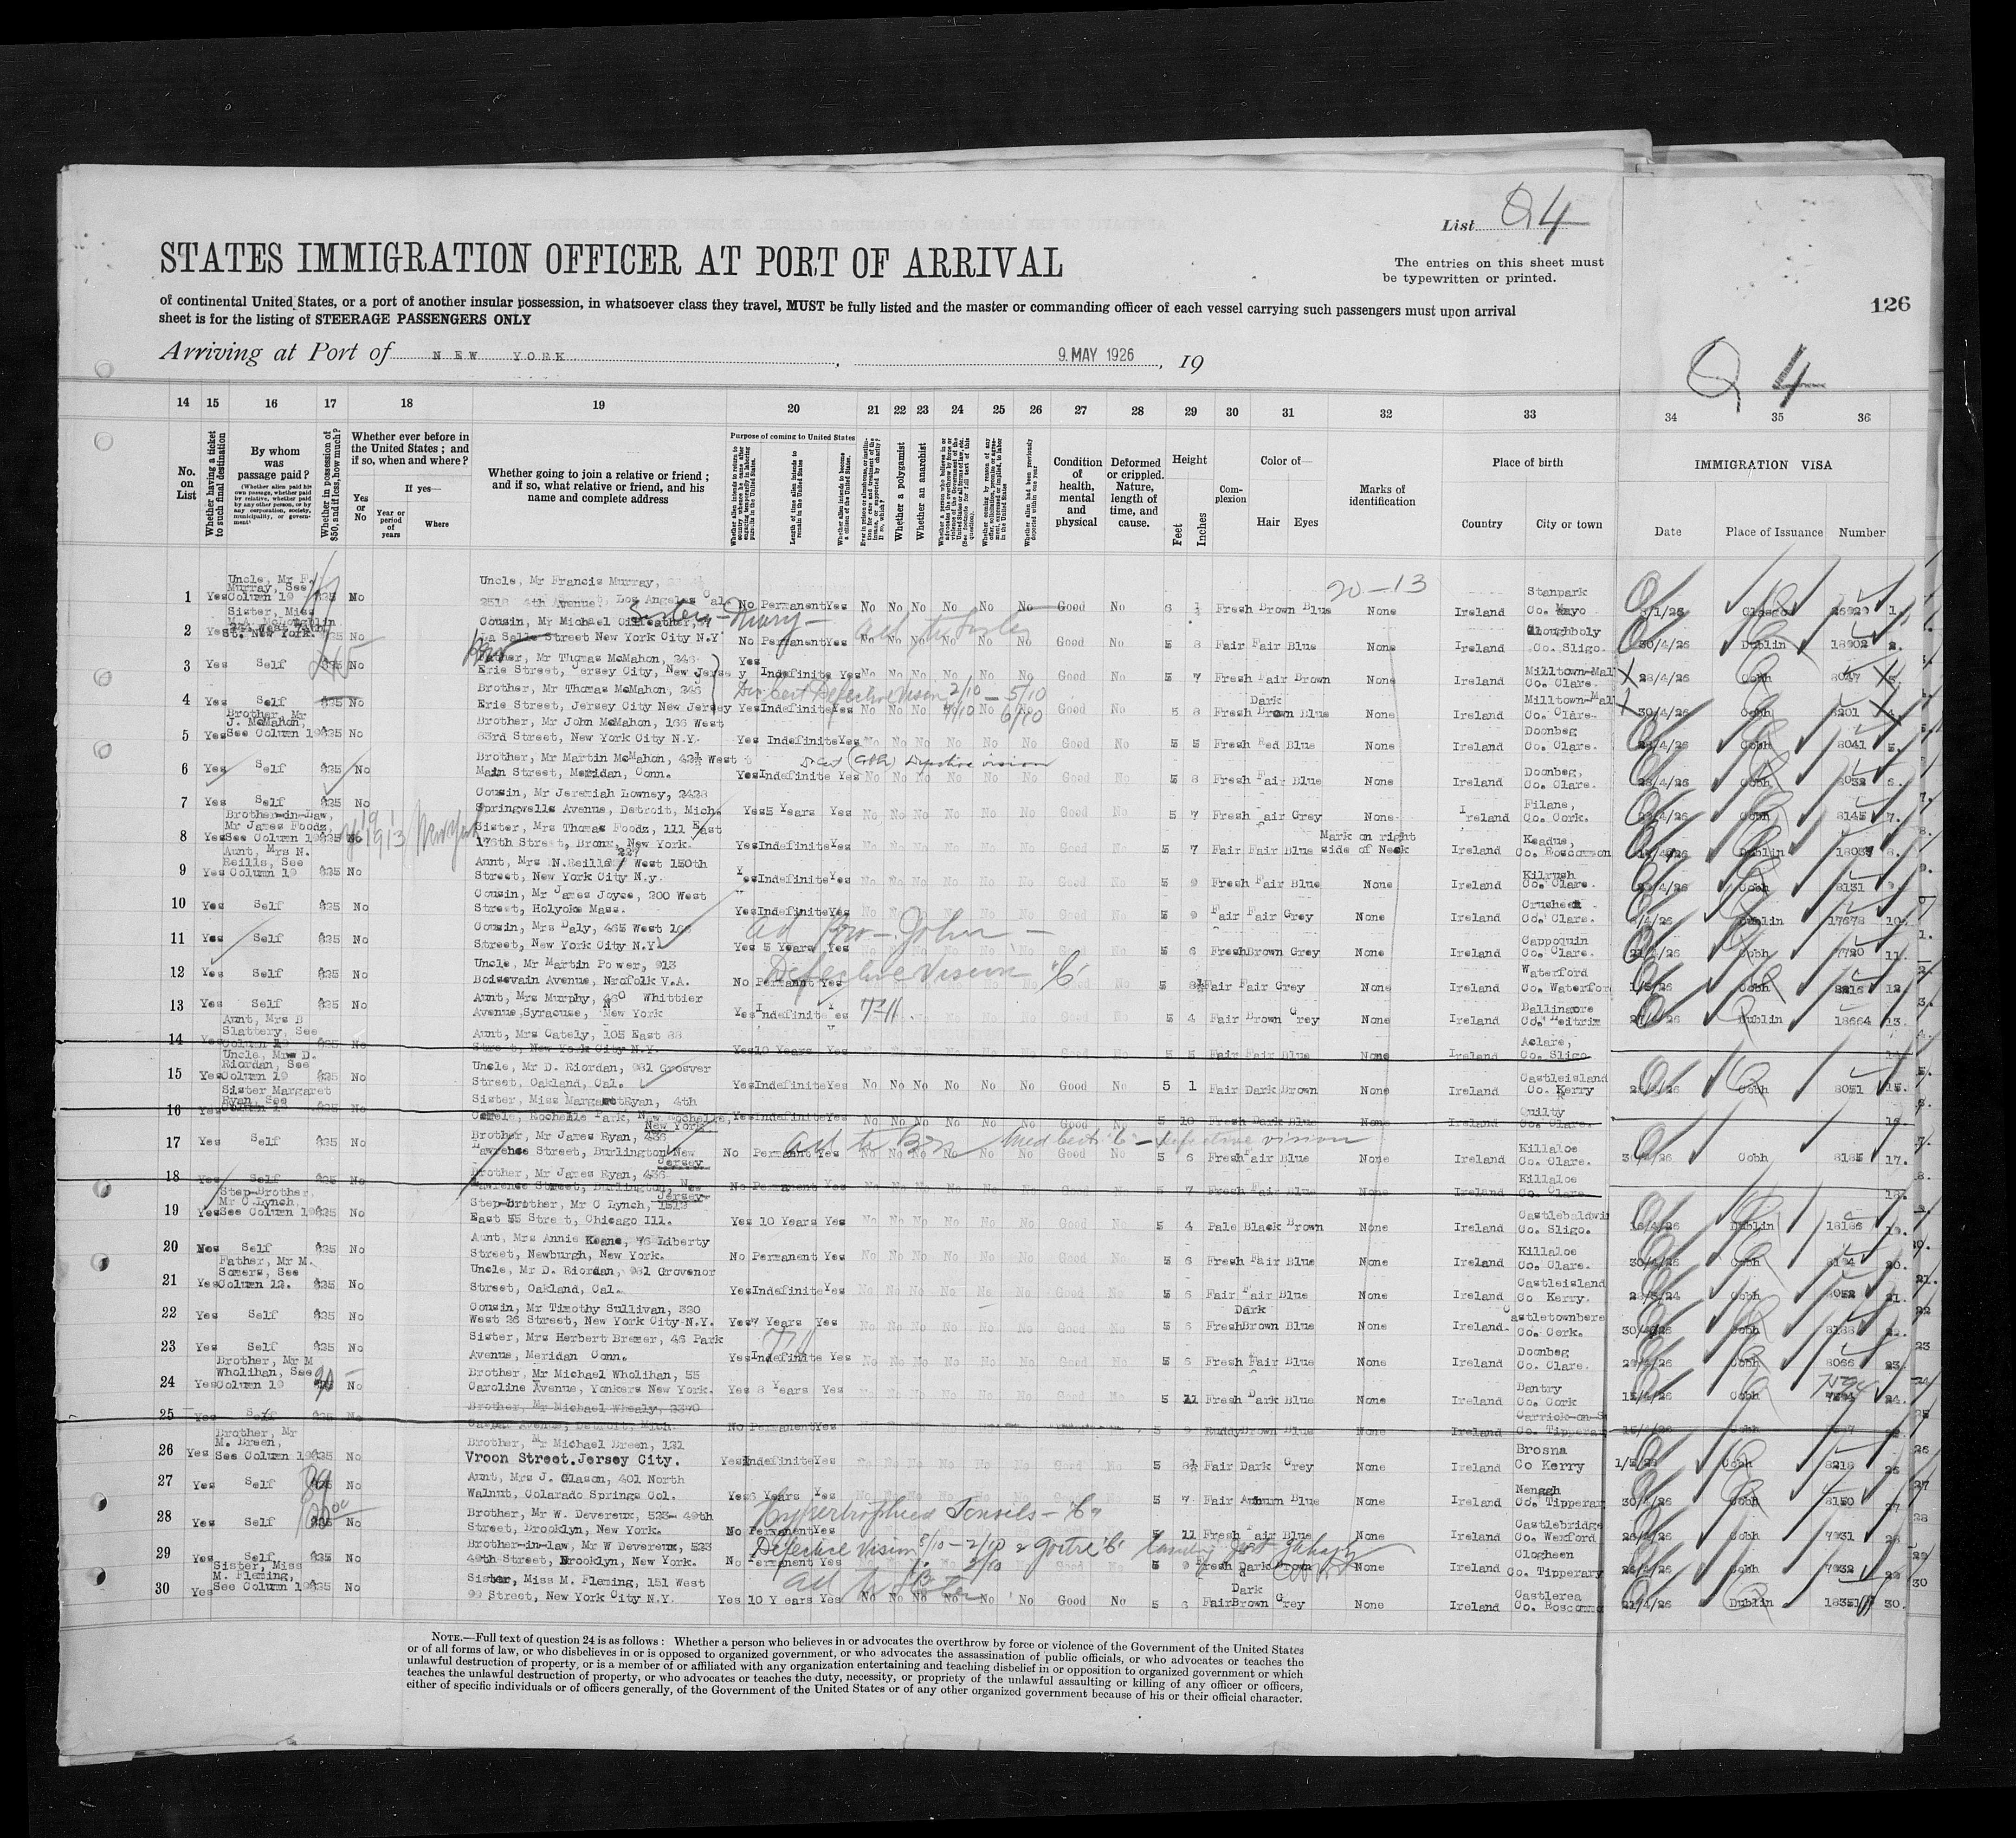 List Q4
STATES IMMIGRATION OFFICER AT PORT OF ARRIVAL
The entries on this sheet must
be typewritten or printed.
126
of continental United States, or a port of another insular possession, in whatsoever class they travel, MUST be fully listed and the master or commanding officer of each vessel carrying such passengers must upon arrival
sheet is for the listing of STEERAGE PASSENGERS ONLY
Arriving at Port of NEW YORK, 9. MAY 1926, 19
Q 4
14 15 16 17 18 19 20 21 22 23 24 25 26 27 28 29 30 31 32 33 34 35 36
No. on List
Whether having a ticket to such final destination
By whom was passage paid?
(Whether alien paid his own passage, whether paid by relative, whether paid by any other person, or by any corporation, society, municipality, or government)
Whether in possession of $50, and if less, how much?
Whether ever before in the United States; and if so, when and where?
Yes or No
If yes—
Year or period of years
Where
Whether going to join a relative or friend; and if so, what relative or friend, and his name and complete address
Purpose of coming to United States
Length of time alien intends to remain in the United States
Whether alien intends to become a citizen of the United States
Whether a polygamist
Whether an anarchist
Condition of health, mental and physical
Deformed or crippled. Nature, length of time, and cause.
Height
Feet
Inches
Complexion
Color of—
Hair
Eyes
Marks of identification
Place of birth
Country
City or town
IMMIGRATION VISA
Date
Place of Issuance
Number
20-13
1 Yes Uncle, Mr F. Murray, See Column 19 $25 No Uncle, Mr Francis Murray, 2518 4th Avenue, Los Angeles Cal No Permanent Yes No No No No No No Good No 6 Fresh Brown Blue None Ireland Stanpark Co. Mayo Glasgow 1
Sister - Mary -
ad to sister
2 Yes Sister, Miss St. New York. $25 No Cousin, Mr Michael La Salle Street New York City N.Y No Permanent Yes No No No No No No Good No 5 8 Fair Fair Blue None Ireland Cloughboly Co. Sligo. 30/4/26 Dublin 18902 2.
3 Yes Self $25 No Mr Thomas McMahon, 246 Erie Street, Jersey City, New Jersey Yes Indefinite Yes No No No No No No Good No 5 7 Fresh Fair Brown None Ireland Milltown-Mal Co. Clare. 28/4/26 Cobh 8047
Defective Vision 2/10 - 5/10
4 Yes Self $25 No Brother, Mr Thomas McMahon, 246 Erie Street, Jersey City New Jersey Yes Indefinite Yes No No No No No Good No 5 8 Fresh Dark Brown Blue None Ireland Milltown-Mal Co. Clare 30/4/26 Cobh 8201
5 Yes Brother, Mr J. McMahon, See Column 19 $25 No Brother, Mr John McMahon, 166 West 83rd Street, New York City N.Y. Yes Indefinite Yes No No No No No No Good No 5 5 Fresh Red Blue None Ireland Doonbeg Co. Clare. Cobh 8041 5.
Defective vision
6 Yes Self $25 No Brother, Mr Martin McMahon, 424 West Main Street, Meridan, Conn. Yes Indefinite Yes No No No No No No Good No 5 8 Fresh Fair Blue None Ireland Doonbeg, Co. Clare. 28/4/26 Cobh 8032 6.
7 Yes Self $25 No Cousin, Mr Jeremiah Lowney, 2428 Springwells Avenue, Detroit, Mich. Yes 5 Years Yes No No No No No No Good No 5 7 Fresh Fair Grey None Ireland Filane, Co. Cork. Cobh 8145 7.
8 Yes Brother-in-Law, Mr James Foodz, See Column 19 $25 1913 New York Sister, Mrs Thomas Foodz, 111 East 176th Street, Bronx, New York. Yes Indefinite Yes No No No No No No Good No 5 7 Fair Fair Blue Mark on right side of Neck Ireland Keadue, Co. Roscommon Dublin 8.
9 Yes Aunt, Mrs N. Reills, See Column 19 $25 No Aunt, Mrs N. Reills, 227 West 150th Street, New York City N.Y. Yes Indefinite Yes No No No No No No Good No 5 9 Fresh Fair Blue None Ireland Kilrush Co. Clare. Cobh 8131 9.
10 Yes Self $25 No Cousin, Mr James Joyce, 200 West Street, Holyoke Mass. Yes Indefinite Yes No No No No No No Good No 5 9 Fair Fair Grey None Ireland Crusheen Co. Clare. Dublin 17678 10.
ad Bro - John -
11 Yes Self $25 No Cousin, Mrs Daly, 465 West 166 Street, New York City N.Y. Yes 5 Years Yes No No No No No No Good No 5 6 Fresh Brown Grey None Ireland Cappoquin Co. Clare. 21/4/26 Cobh 7720 11.
Defective Vision 'C'
12 Yes Self $25 No Uncle, Mr Martin Power, 913 Boissvain Avenue, Nrofolk V.A. No Permannt Yes 5 8½ Fair Fair Grey None Ireland Waterford Co. Waterford Cobh 8216 12.
13 Yes Self $25 No Aunt, Mrs Murphy, 460 Whittier Avenue, Syracuse, New York Yes Indefinite Yes 5 4 Fair Brown Grey None Ireland Ballinamore Co. Leitrim Dublin 18664 13.
14 Yes Aunt, Mrs B Slattery, See Column 19 $25 No Aunt, Mrs Gately, 105 East 88 Street, New York City N.Y. Yes 10 Years Yes No No No No No No Good No 5 5 Fair Fair Blue None Ireland Aclare, Co. Sligo 14.
15 Yes Uncle, Mrs D. Riordan, See Column 19 $25 No Uncle, Mr D. Riordan, 981 Grosver Street, Oakland, Cal. Yes Indefinite Yes No No No No No No Good No 5 1 Fair Dark Brown None Ireland Castleisland Co. Kerry Cobh 8051 15.
16 Yes Sister Margaret Ryan, See Column 19 $25 No Sister, Miss Margaret Ryan, 4th Rochelle Park, New Rochelle, New York Yes Indefinite Yes No No No No No No Good No 5 10 Fresh Dark Blue None Ireland Quilty Co. Clare. 16.
ad to Bro Med Cert 'C' - defective vision
17 Yes Self $25 No Brother, Mr James Ryan, 436 Lawrence Street, Burlington New Jersey No Permannt Yes No No No No No No Good No 5 6 Fresh Fair Blue None Ireland Killaloe Co. Clare. Cobh 8185 17.
18 Yes Self $25 No Brother, Mr James Ryan, 436 Lawrence Street, Burlington, New Jersey No Permanent Yes No No No No No No Good No 5 7 Fresh Fair Blue None Ireland Killaloe Co. Clare 18.
19 Yes Step-Brother, Mr C Lynch, See Column 19 $25 No Step-brother, Mr C Lynch, 1512 East 55 Street, Chicago Ill. Yes 10 Years Yes No No No No No No Good No 5 4 Pale Black Brown None Ireland Castlebaldwin Co. Sligo. Dublin 18186 19.
20 Self $25 No Aunt, Mrs Annie Keane, 76 Liberty Street, Newburgh, New York. No Permanent Yes No No No No No No Good No 5 6 Fresh Fair Blue None Ireland Killaloe Co. Clare. 30/4/26 Cobh 8194 20.
21 Yes Father, Mr M. Somers, See Column 12. $25 No Uncle, Mr D. Riordan, 981 Grovenor Street, Oakland, Cal. Yes Indefinite Yes No No No No No No Good No 5 6 Fair Fair Blue None Ireland Castleisland Co Kerry. Cobh 8052 21.
22 Yes Self $25 No Cousin, Mr Timothy Sullivan, 320 West 26 Street, New York City N.Y. Yes 7 Years Yes No No No No No No Good No 5 6 Fresh Dark Brown Blue None Ireland Castletownbere Co. Cork. Cobh 8188 22.
23 Yes Self $25 No Sister, Mrs Herbert Bremer, 46 Park Avenue, Meridan Conn. Yes Indefinite Yes No No No No No No Good No 5 6 Fresh Fair Blue None Ireland Doonbeg Co. Clare. Cobh 8066 23.
24 Yes Brother, Mr M Wholihan, See Column 19 No Brother, Mr Michael Wholihan, 55 Caroline Avenue, Yonkers New York. Yes 8 Years Yes No No No No No No Good No 5 11 Fresh Dark Blue None Ireland Bantry Co. Cork Cobh 24.
25 Yes Self $25 No Brother, Mr Michael Whealy, 2370 Avenue, Detroit, Mich. No Permanent Yes 5 Ruddy Brown Blue None Ireland Carrick-on-S Co. Tipperar 15/4/26 Cobh
26 Yes Brother, Mr M. Breen, See Column 19 $25 No Brother, Mr Michael Breen, 121 Vroon Street. Jersey City. Yes Indefinite Yes No No No No No No Good No 5 8½ Fair Dark Grey None Ireland Brosna Co Kerry Cobh 8218 26
27 Yes Self No Aunt, Mrs J. Glason, 401 North Walnut, Colarado Springs Col. Yes 6 Years Yes 5 7 Fair Auburn Blue None Ireland Nenagh Co. Tipperar 30/4/26 Cobh 8150 27
Hypertrophied Tonsils - "C"
28 Yes Self $25 No Brother, Mr W. Devereux, 523- 49th Street, Brooklyn, New York. No Permanent Yes 5 11 Fresh Fair Blue None Ireland Castlebridge Co. Wexford 26/4/26 Cobh 7931 28
Defective Vision 5/10 - 2/10 & goitre 'C'
29 Yes Self $25 No Brother-in-law, Mr W Devereux, 523 49th Street, Brooklyn, New York. No Permanent Yes 5 9 Fresh Dark Brown None Ireland Clogheen Co. Tipperary 26/4/26 Cobh 7932 29
ad to Sister
30 Yes Sister, Miss M. Fleming, See Column 19 $25 No Sister, Miss M. Fleming, 151 West 99 Street, New York City N.Y. Yes 10 Years Yes No No No No No No Good No 5 6 Fair Dark Brown Grey None Ireland Castlerea Co. Roscommo 21/4/26 Dublin 18351 30.
NOTE.—Full text of question 24 is as follows: Whether a person who believes in or advocates the overthrow by force or violence of the Government of the United States
or of all forms of law, or who disbelieves in or is opposed to organized government, or who advocates the assassination of public officials, or who advocates or teaches the
unlawful destruction of property, or is a member of or affiliated with any organization entertaining and teaching disbelief in or opposition to organized government or which
teaches the unlawful destruction of property, or who advocates or teaches the duty, necessity, or propriety of the unlawful assaulting or killing of any officer or officers,
either of specific individuals or of officers generally, of the Government of the United States or of any other organized government because of his or their official character.